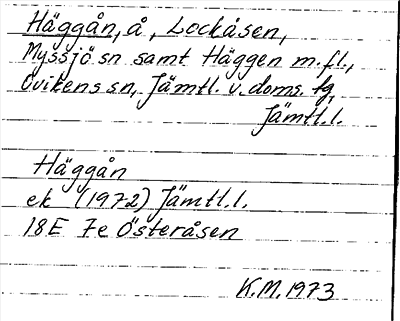 Häggån, å, Lockåsen,
Myssjö sn samt Häggen m.fl.,
Ovikens sn, Jämtl. v. doms. tg,
Jämtl.l.
Häggån
ek (1972) Jämtl.l.
18E 7e Österåsen
K.M. 1973